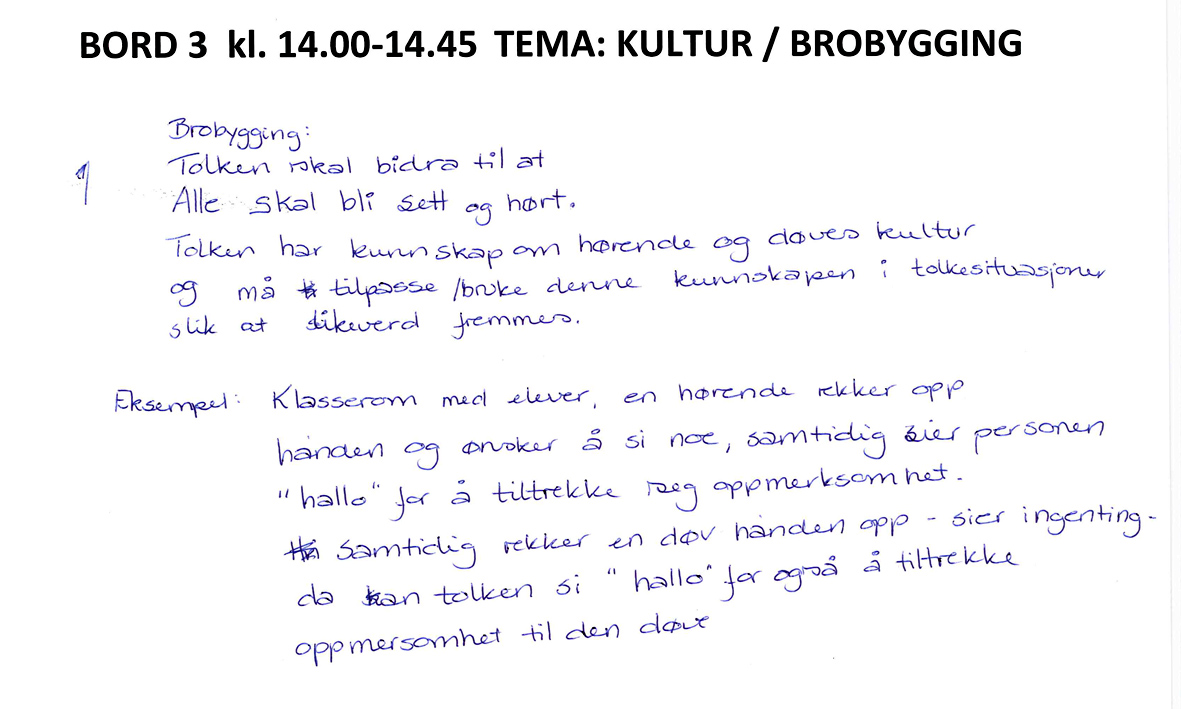 BORD 3 kl. 14.00-14.45 TEMA: KULTUR / BROBYGGING
Brobygging:
1 Tolken skal bidra til at
Alle skal bli sett og hørt.
Tolken har kunnskap om hørende og døves kultur
og må tilpasse /bruke denne kunnskapen i tolkesituasjoner
slik at likeverd fremmes.
Eksempel: Klasserom med elever, en hørende rekker opp
hånden og ønsker å si noe, samtidig sier personen
"hallo" for å tiltrekke seg oppmerksomhet.
samtidig rekker en døv hånden opp - sier ingenting -
da kan tolken si "hallo" for også å tiltrekke
oppmersomhet til den døve